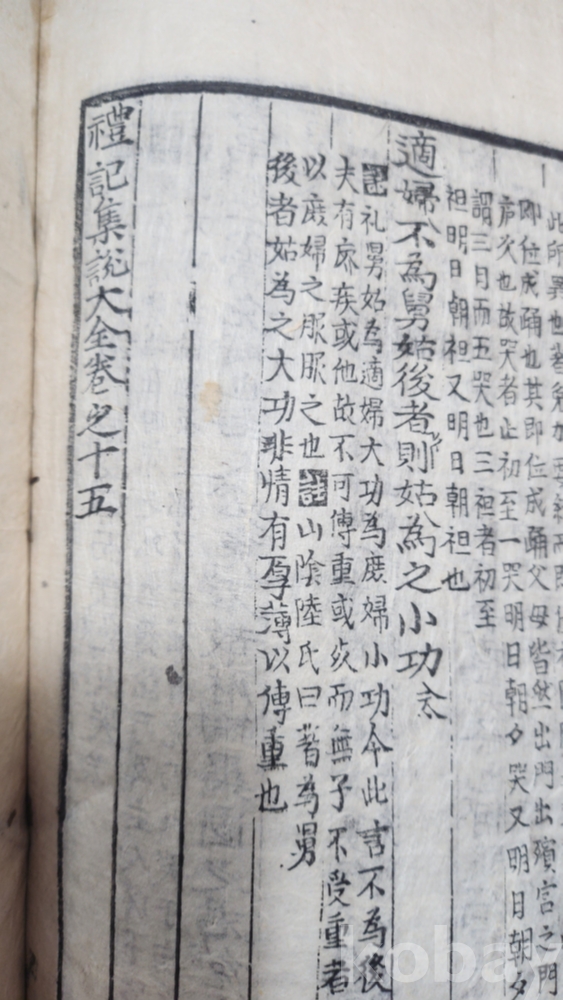 此所異也
即位成踊也其即位成踊父母皆然出門出殯宮之門
哭明日朝夕哭又明日朝夕
次也故哭者止初至一
謂三日而五哭也三袒者初至
袒明日朝袒又明日朝袒也
適婦不為舅姑後者則姑為之小功
礼舅姑為適婦大功為庶婦小功今此言不為後
夫有廢疾或他故不可傳重或死而無子不受重者
以庶婦之服服之也 山陰陸氏曰著為舅
後者姑為之大功非情有厚薄以傳重也
禮記集說大全卷之十五
kobay